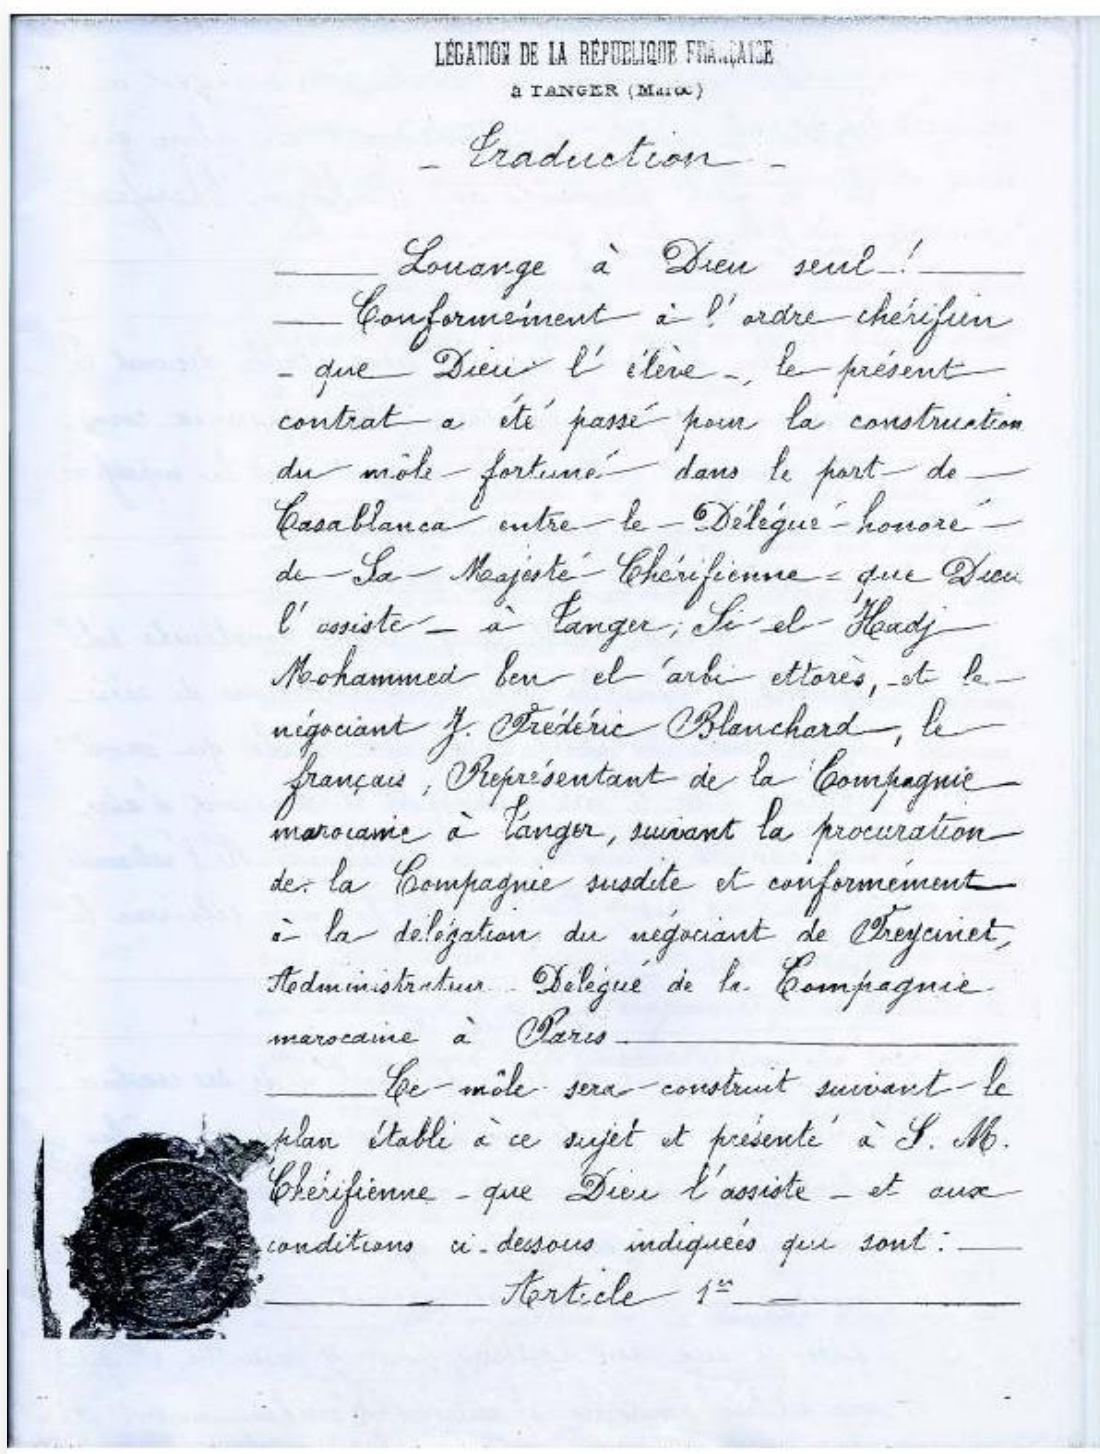 LÉGATION DE LA RÉPUBLIQUE FRANÇAISE
à TANGER (Maroc)
- Traduction -
Louange à Dieu seul !
Conformément à l'ordre chérifien
- que Dieu l'élève -, le présent
contrat a été passé pour la construction
du môle fortuné dans le port de
Casablanca entre le Délégué honoré
de Sa Majesté Chérifienne - que Dieu
l'assiste - à Tanger, Si el Hadj
Mohammed ben el árbi ettorès, et le
négociant J. Frédéric Blanchard, le
français, Représentant de la Compagnie
marocaine à Tanger, suivant la procuration
de la Compagnie susdite et conformément
à la délégation du négociant de Freycinet,
Administrateur Délégué de la Compagnie
marocaine à Paris
Ce môle sera construit suivant le
plan établi à ce sujet et présenté à S. M.
Chérifienne - que Dieu l'assiste - et aux
conditions ci-dessous indiquées qui sont :
Article 1er